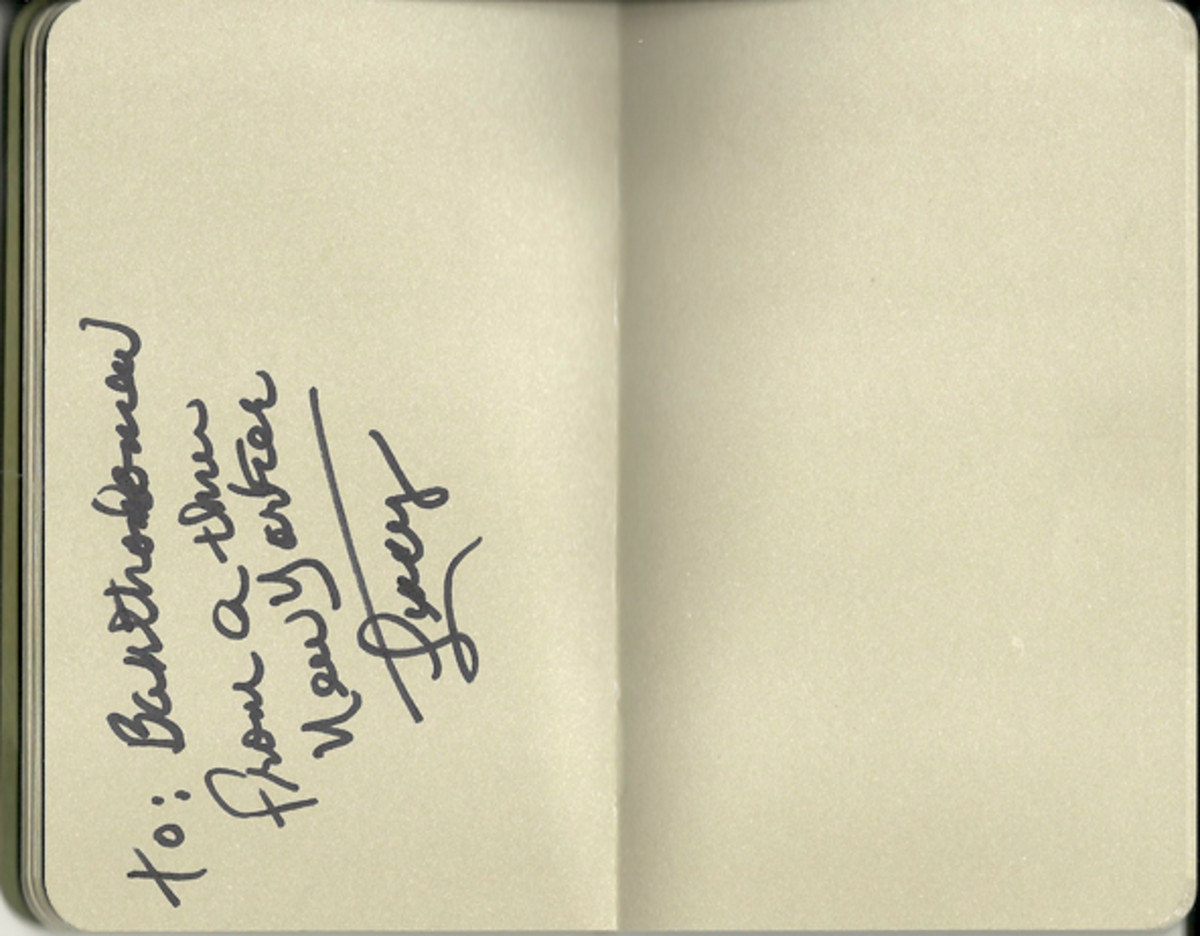 to: Bartholomew
from a thru
New Yorker
Tracy